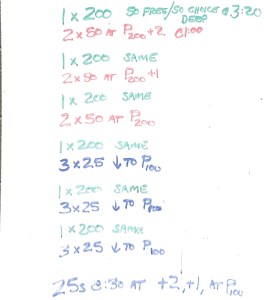 1 x 200 50 FREE/50 CHOICE @ 3:20
DESC
2 x 50 AT P200+2 @1:00
1 x 200 SAME
2 x 50 AT P200+1
1 x 200 SAME
2 x 50 AT P200
1 x 200 SAME
3 x 25 ↓ TO P100
1 x 200 SAME
3 x 25 ↓ TO P100
1 x 200 SAME
3 x 25 ↓ TO P100
25s @ :30 AT +2, +1, AT P100